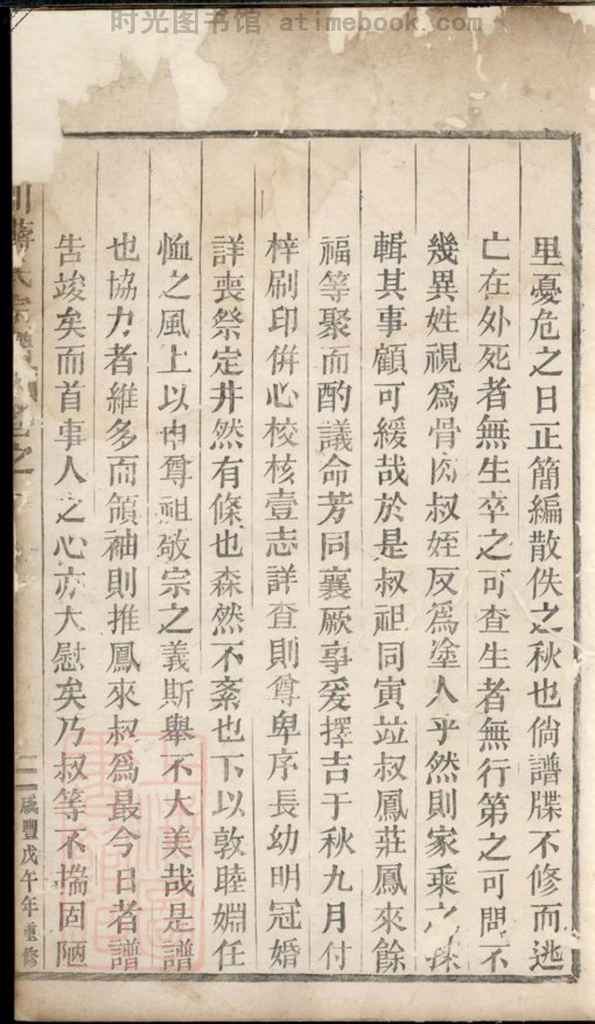 时光图书馆 atimebook.com
里憂危之日正簡編散佚之秋也倘譜牒不修而逃
亡在外死者無生卒之可查生者無行第之可問不
幾異姓視為骨肉叔姪反為塗人乎然則家乘之採
輯其事顧可緩哉於是叔祖同寅竝叔鳳莊鳳來餘
福等聚而酌議命芳同襄厥事爰擇吉于秋九月付
梓刷印併心校核壹志詳査則尊卑序長幼明冠婚
詳喪祭定井然有條也森然不紊也下以敦睦婣任
恤之風上以申尊祖敬宗之義斯舉不大美哉是譜
也協力者維多而領袖則推鳳來叔為最今日者譜
告竣矣而首事人之心亦大慰矣乃叔等不揣固陋
川蔣氏宗譜 卷之一
二 咸豐戊午年重修